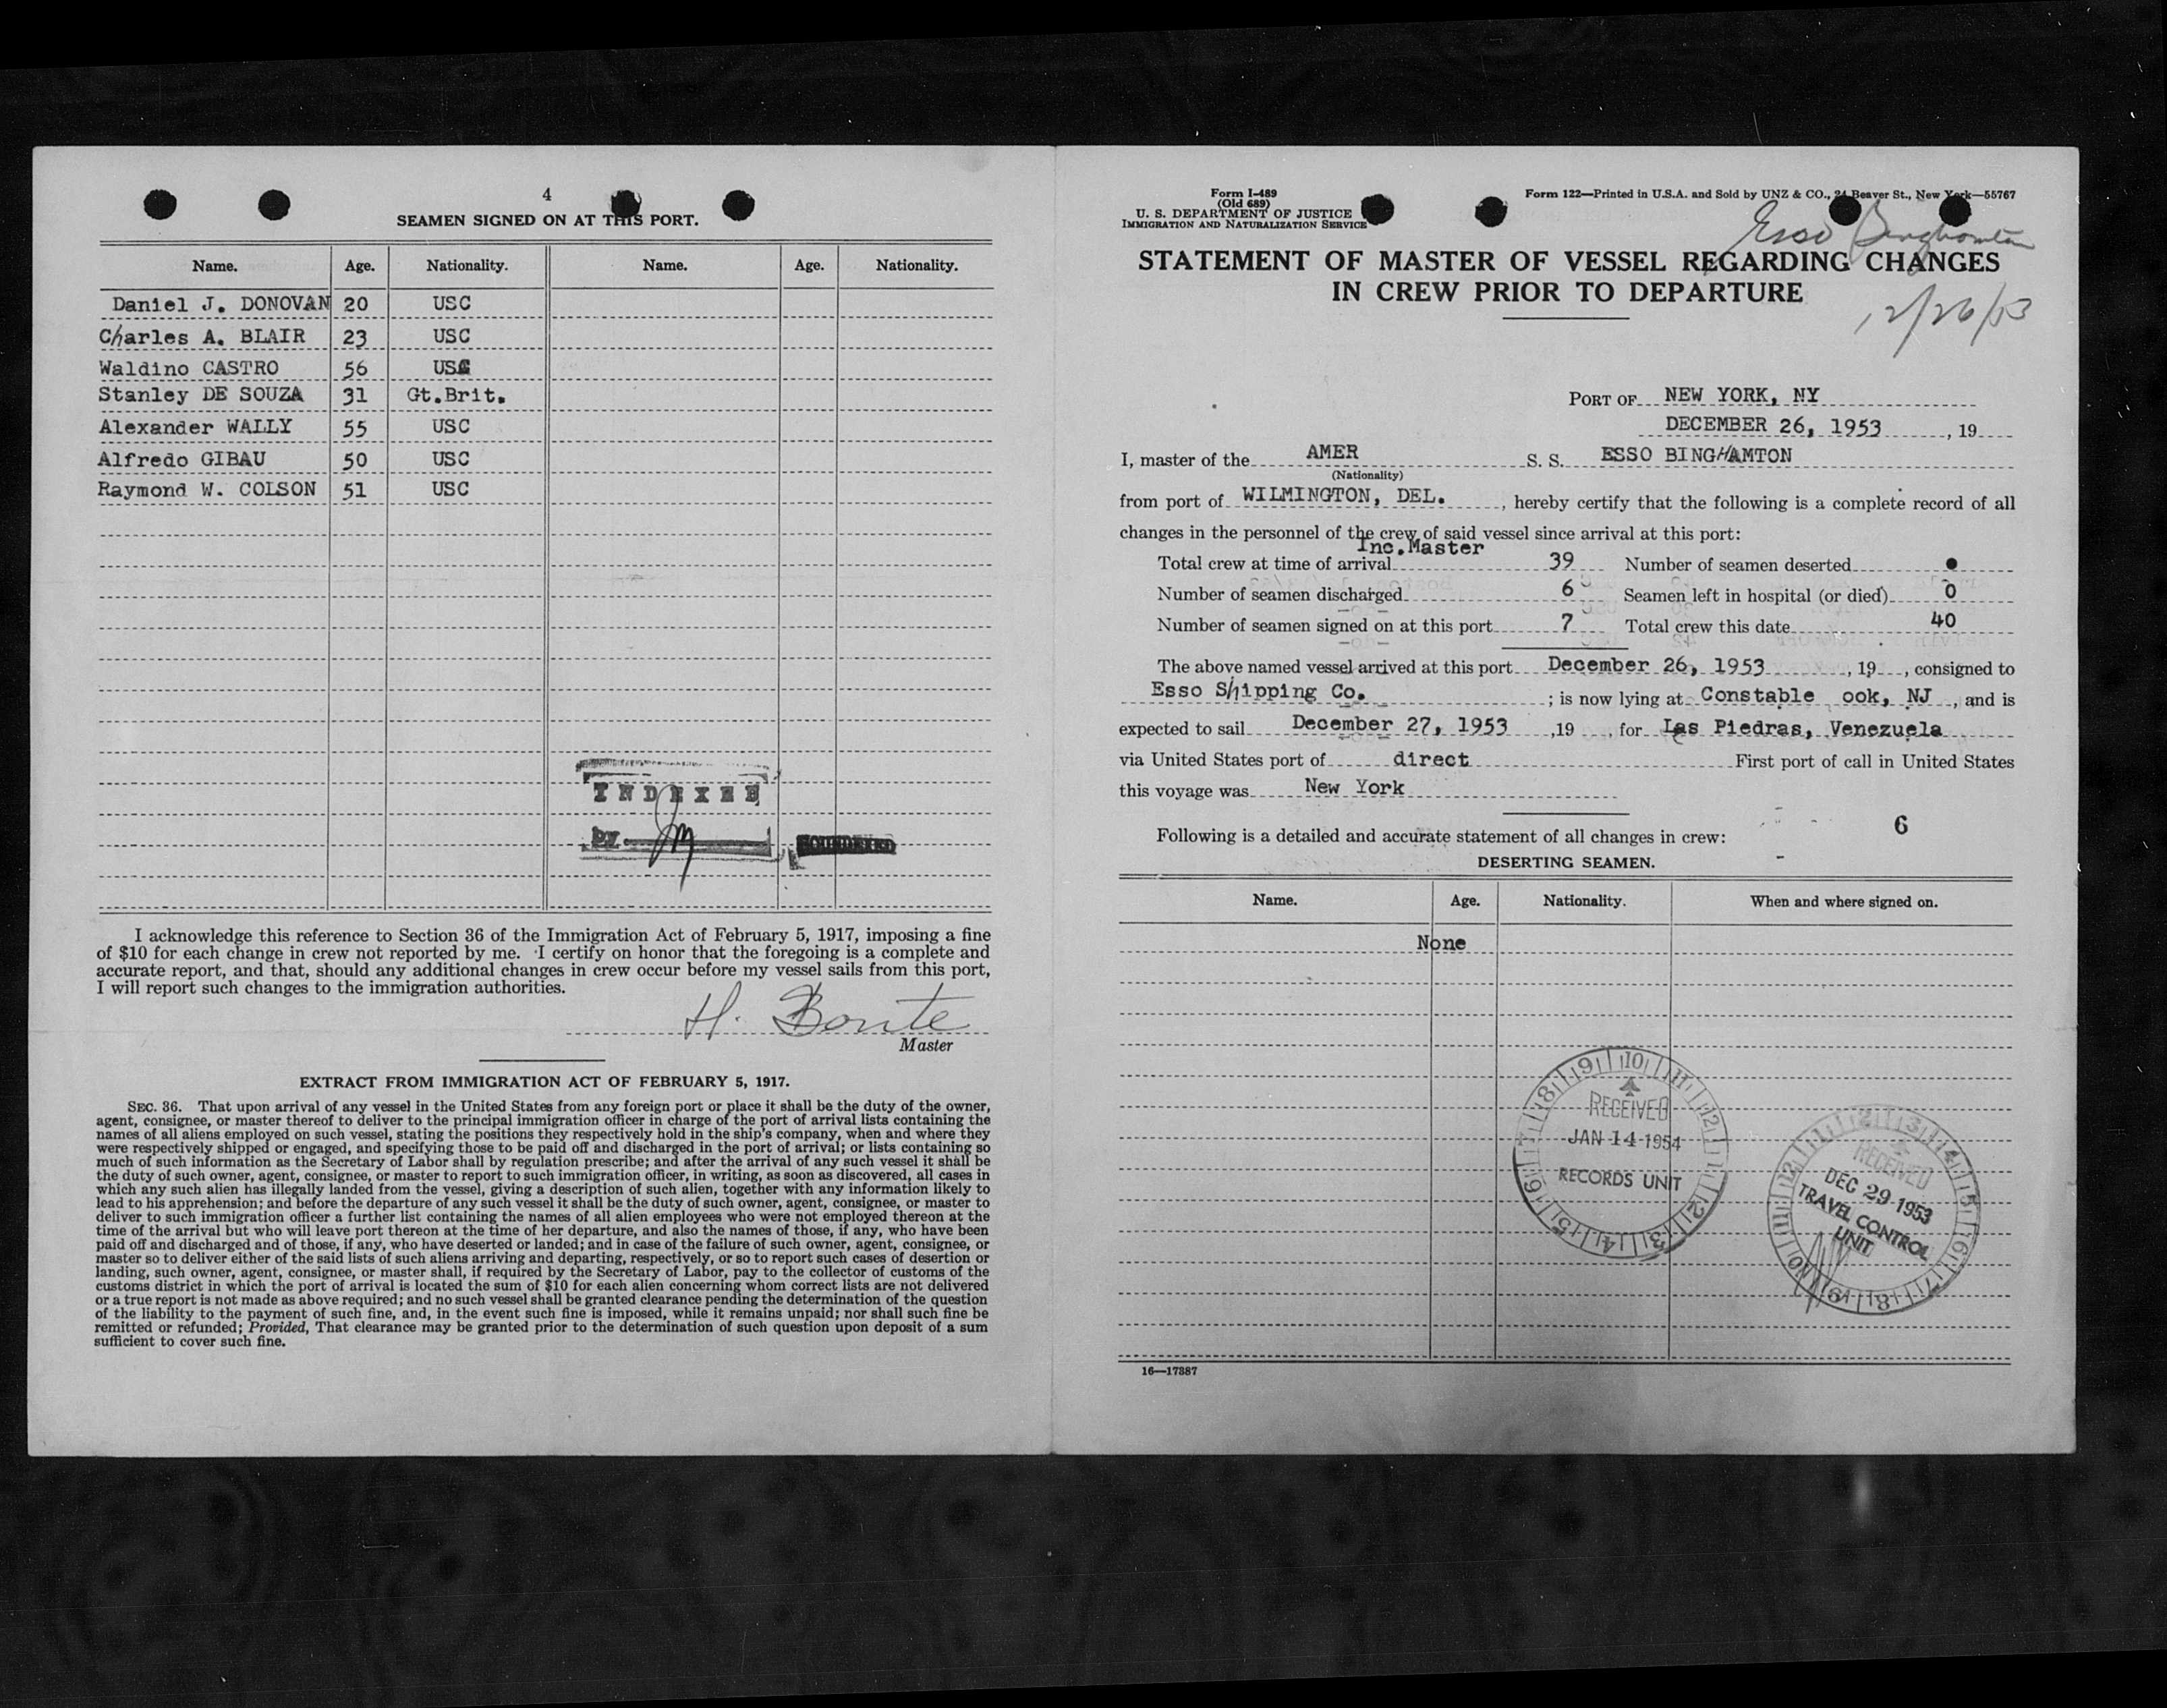 4
SEAMEN SIGNED ON AT THIS PORT.
Name. Age. Nationality. Name. Age. Nationality.
Daniel J. DONOVAN 20 USC
Charles A. BLAIR 23 USC
Waldino CASTRO 56 USC
Stanley DE SOUZA 31 Gt.Brit.
Alexander WALLY 55 USC
Alfredo GIBAU 50 USC
Raymond W. COLSON 51 USC
INDEXED
by
I acknowledge this reference to Section 36 of the Immigration Act of February 5, 1917, imposing a fine
of $10 for each change in crew not reported by me. I certify on honor that the foregoing is a complete and
accurate report, and that, should any additional changes in crew occur before my vessel sails from this port,
I will report such changes to the immigration authorities.
H. Bonte
Master
EXTRACT FROM IMMIGRATION ACT OF FEBRUARY 5, 1917.
SEC. 36. That upon arrival of any vessel in the United States from any foreign port or place it shall be the duty of the owner,
agent, consignee, or master thereof to deliver to the principal immigration officer in charge of the port of arrival lists containing the
names of all aliens employed on such vessel, stating the positions they respectively hold in the ship's company, when and where they
were respectively shipped or engaged, and specifying those to be paid off and discharged in the port of arrival; or lists containing so
much of such information as the Secretary of Labor shall by regulation prescribe; and after the arrival of any such vessel it shall be
the duty of such owner, agent, consignee, or master to report to such immigration officer, in writing, as soon as discovered, all cases in
which any such alien has illegally landed from the vessel, giving a description of such alien, together with any information likely to
lead to his apprehension; and before the departure of any such vessel it shall be the duty of such owner, agent, consignee, or master to
deliver to such immigration officer a further list containing the names of all alien employees who were not employed thereon at the
time of the arrival but who will leave port thereon at the time of her departure, and also the names of those, if any, who have been
paid off and discharged and of those, if any, who have deserted or landed; and in case of the failure of such owner, agent, consignee, or
master so to deliver either of the said lists of such aliens arriving and departing, respectively, or so to report such cases of desertion or
landing, such owner, agent, consignee, or master shall, if required by the Secretary of Labor, pay to the collector of customs of the
customs district in which the port of arrival is located the sum of $10 for each alien concerning whom correct lists are not delivered
or a true report is not made as above required; and no such vessel shall be granted clearance pending the determination of the question
of the liability to the payment of such fine, and, in the event such fine is imposed, while it remains unpaid; nor shall such fine be
remitted or refunded; Provided, That clearance may be granted prior to the determination of such question upon deposit of a sum
sufficient to cover such fine.
Form I-489
(Old 689)
U. S. DEPARTMENT OF JUSTICE
IMMIGRATION AND NATURALIZATION SERVICE
Form 122—Printed in U.S.A. and Sold by UNZ & CO., 24 Beaver St., New York—55767
Esso Binghamton
STATEMENT OF MASTER OF VESSEL REGARDING CHANGES
IN CREW PRIOR TO DEPARTURE
12/26/53
PORT OF NEW YORK, NY
DECEMBER 26, 1953, 19
I, master of the AMER S. S. ESSO BINGHAMTON
(Nationality)
from port of WILMINGTON, DEL., hereby certify that the following is a complete record of all
changes in the personnel of the crew of said vessel since arrival at this port:
Inc.Master
Total crew at time of arrival 39 Number of seamen deserted
Number of seamen discharged 6 Seamen left in hospital (or died) 0
Number of seamen signed on at this port 7 Total crew this date 40
The above named vessel arrived at this port December 26, 1953, 19, consigned to
Esso Shipping Co.; is now lying at Constable ook, NJ, and is
expected to sail December 27, 1953, 19, for Las Piedras, Venezuela
via United States port of direct First port of call in United States
this voyage was New York
6
Following is a detailed and accurate statement of all changes in crew:
DESERTING SEAMEN.
Name. Age. Nationality. When and where signed on.
None
RECEIVED
JAN 14 1954
RECORDS UNIT
RECEIVED
DEC 29 1953
TRAVEL CONTROL
UNIT
16—17387